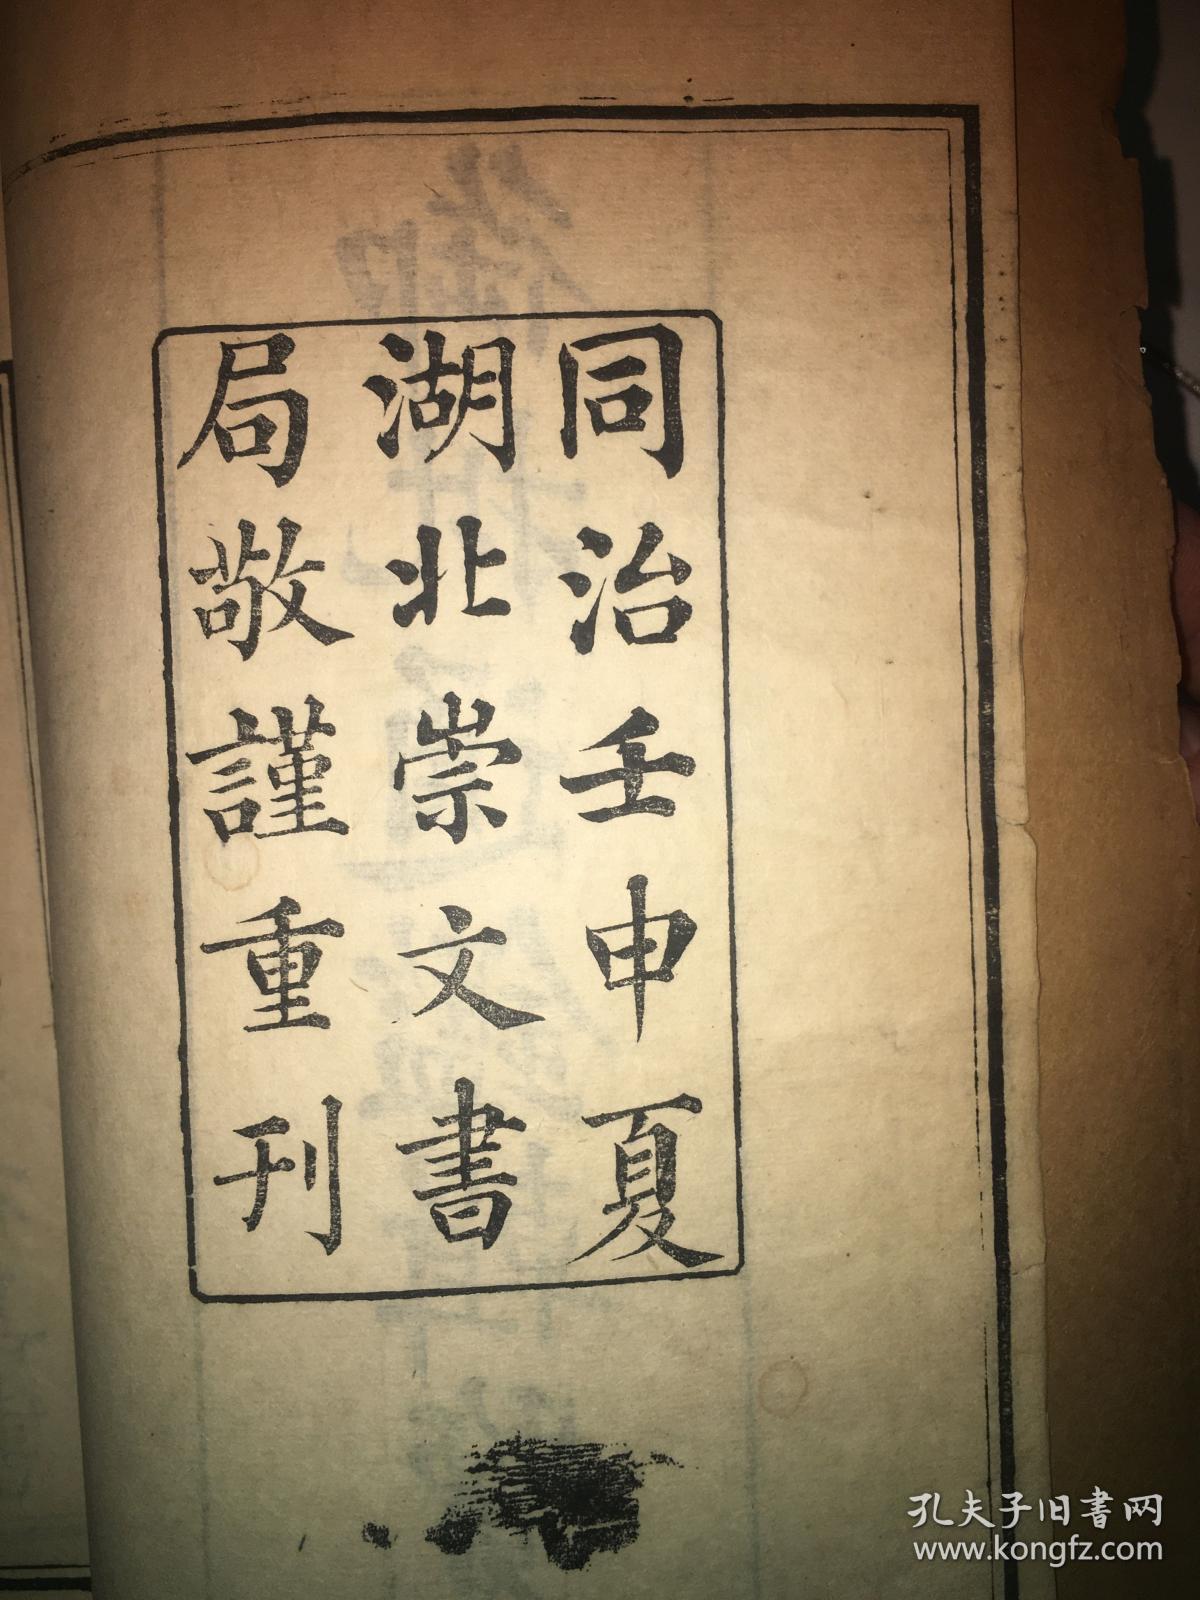 同治壬申夏
湖北崇文書
局敬謹重刊
孔夫子旧書网
www.kongfz.com